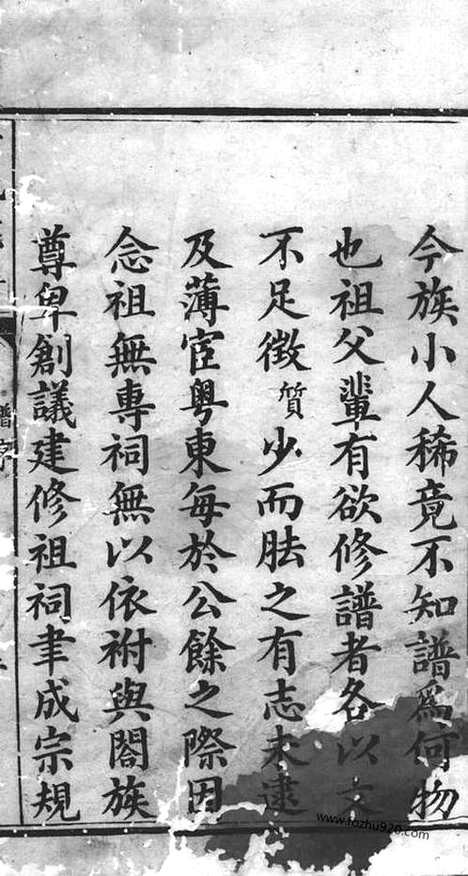 今族小人稀竟不知譜為何物
也祖父輩有欲修譜者各以文
不足徵質少而胠之有志未逮
及薄宦粵東每於公餘之際因
念祖無專祠無以依祔與閤族
尊卑創議建修祖祠聿成宗規
譜序
www.fozhu920.com